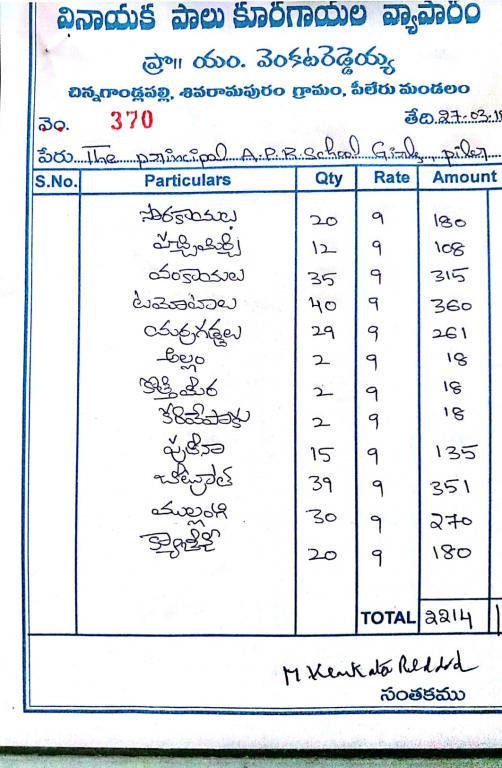 వినాయక పాలు కూరగాయల వ్యాపారం
ప్రొ॥ యం. వెంకటరెడ్డెయ్య
చిన్నగాండ్లపల్లి, శివరామపురం గ్రామం, పీలేరు మండలం
నెం. 370 తేది.27.03.18
పేరు. The principal A.P.R School Girls, piler
S.No. Particulars Qty Rate Amount
సొరకాయలు 20 9 180
పచ్చిమిర్చి 12 9 108
వంకాయలు 35 9 315
టమోటాలు 40 9 360
యర్రగడ్డలు 29 9 261
అల్లం 2 9 18
కొత్తిమిర 2 9 18
కరివేపాకు 2 9 18
పుదీనా 15 9 135
బీట్రూట్ 39 9 351
ముల్లంగి 30 9 270
క్యారెట్ 20 9 180
TOTAL 2214
M Venkata Reddy
సంతకము